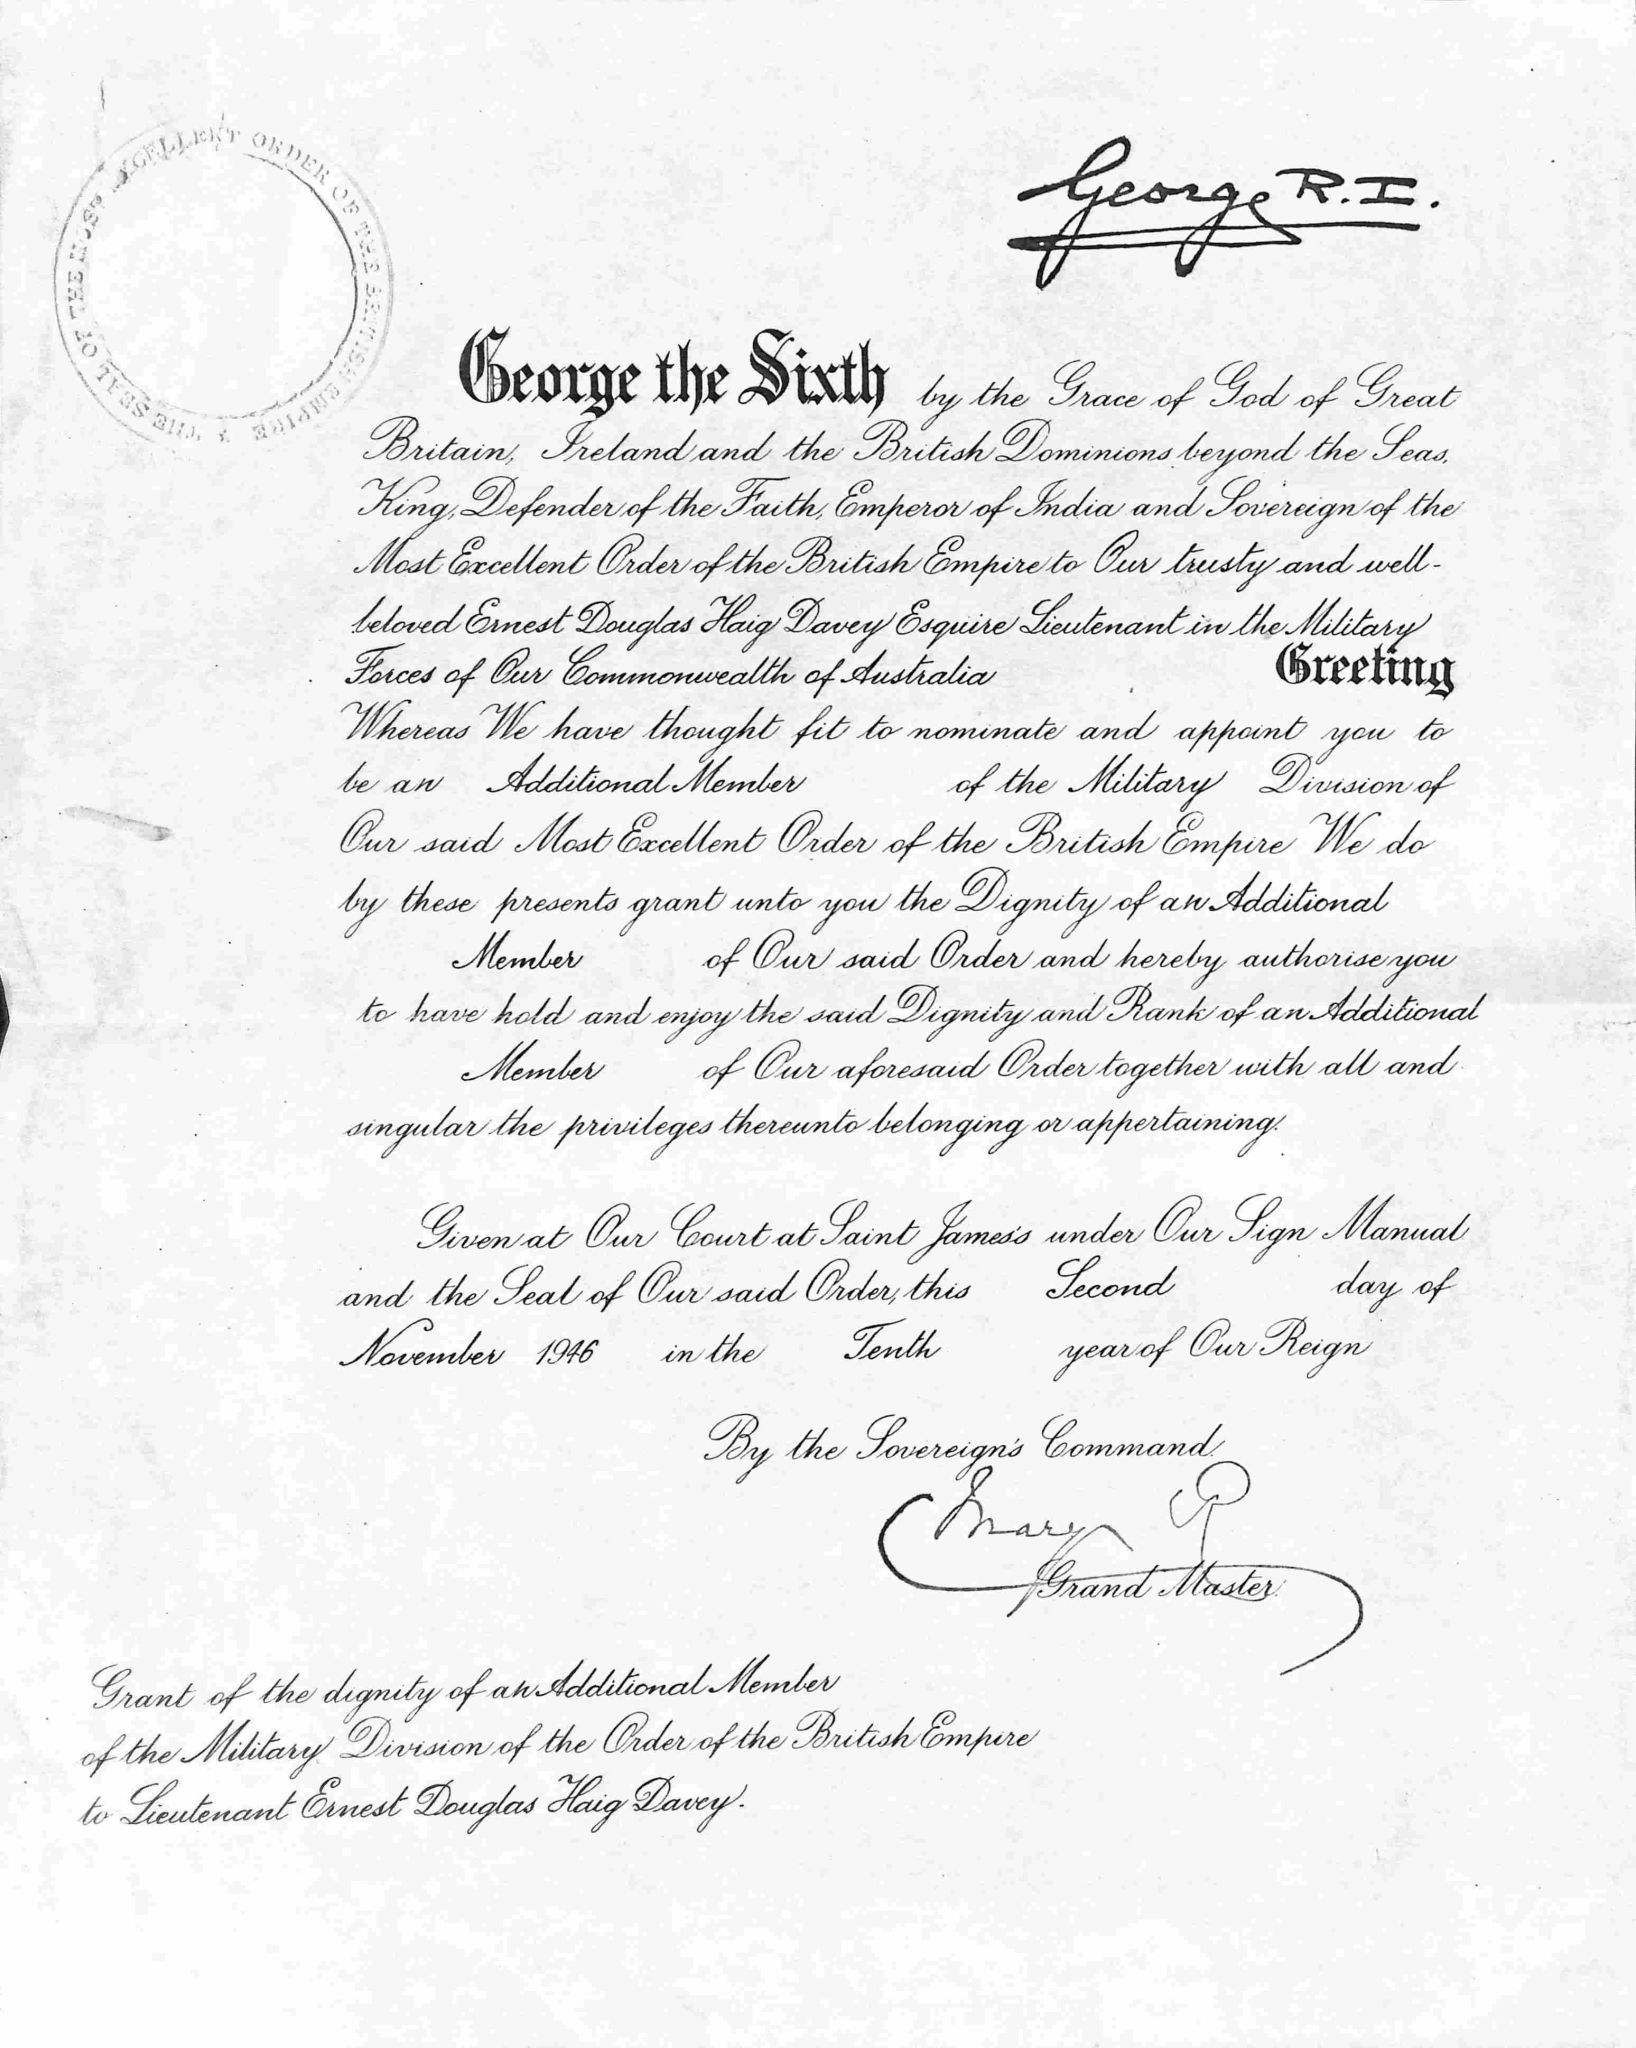 THE SEAL OF THE MOST EXCELLENT ORDER OF THE BRITISH EMPIRE
George R.I.
George the Sixth by the Grace of God of Great
Britain, Ireland and the British Dominions beyond the Seas,
King, Defender of the Faith, Emperor of India and Sovereign of the
Most Excellent Order of the British Empire to Our trusty and well-
beloved Ernest Douglas Haig Davey Esquire Lieutenant in the Military
Forces of Our Commonwealth of Australia Greeting
Whereas We have thought fit to nominate and appoint you to
be an Additional Member of the Military Division of
Our said Most Excellent Order of the British Empire We do
by these presents grant unto you the Dignity of an Additional
Member of Our said Order and hereby authorise you
to have hold and enjoy the said Dignity and Rank of an Additional
Member of Our aforesaid Order together with all and
singular the privileges thereunto belonging or appertaining.
Given at Our Court at Saint James's under Our Sign Manual
and the Seal of Our said Order, this Second day of
November 1946 in the Tenth year of Our Reign
By the Sovereign's Command.
Mary R
Grand Master.
Grant of the dignity of an Additional Member
of the Military Division of the Order of the British Empire
to Lieutenant Ernest Douglas Haig Davey.